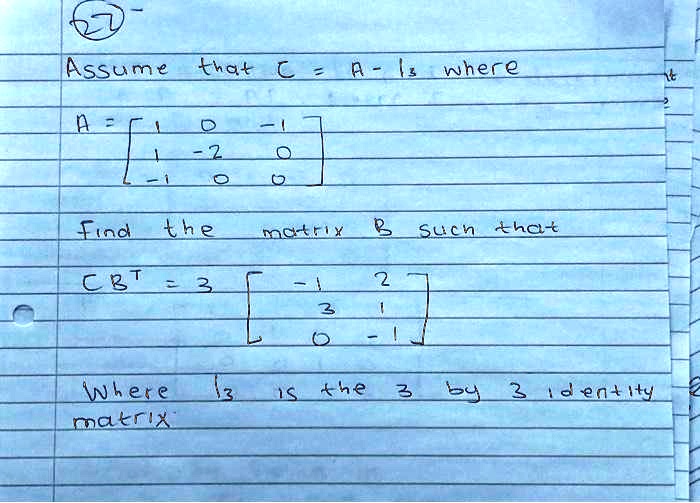 22
Assume that C = A - I3 where
A = [ 1 0 -1
1 -2 0
-1 0 0 ]
Find the matrix B such that
CB^T = 3 [ -1 2
3 1
0 -1 ]
Where I3 is the 3 by 3 identity
matrix